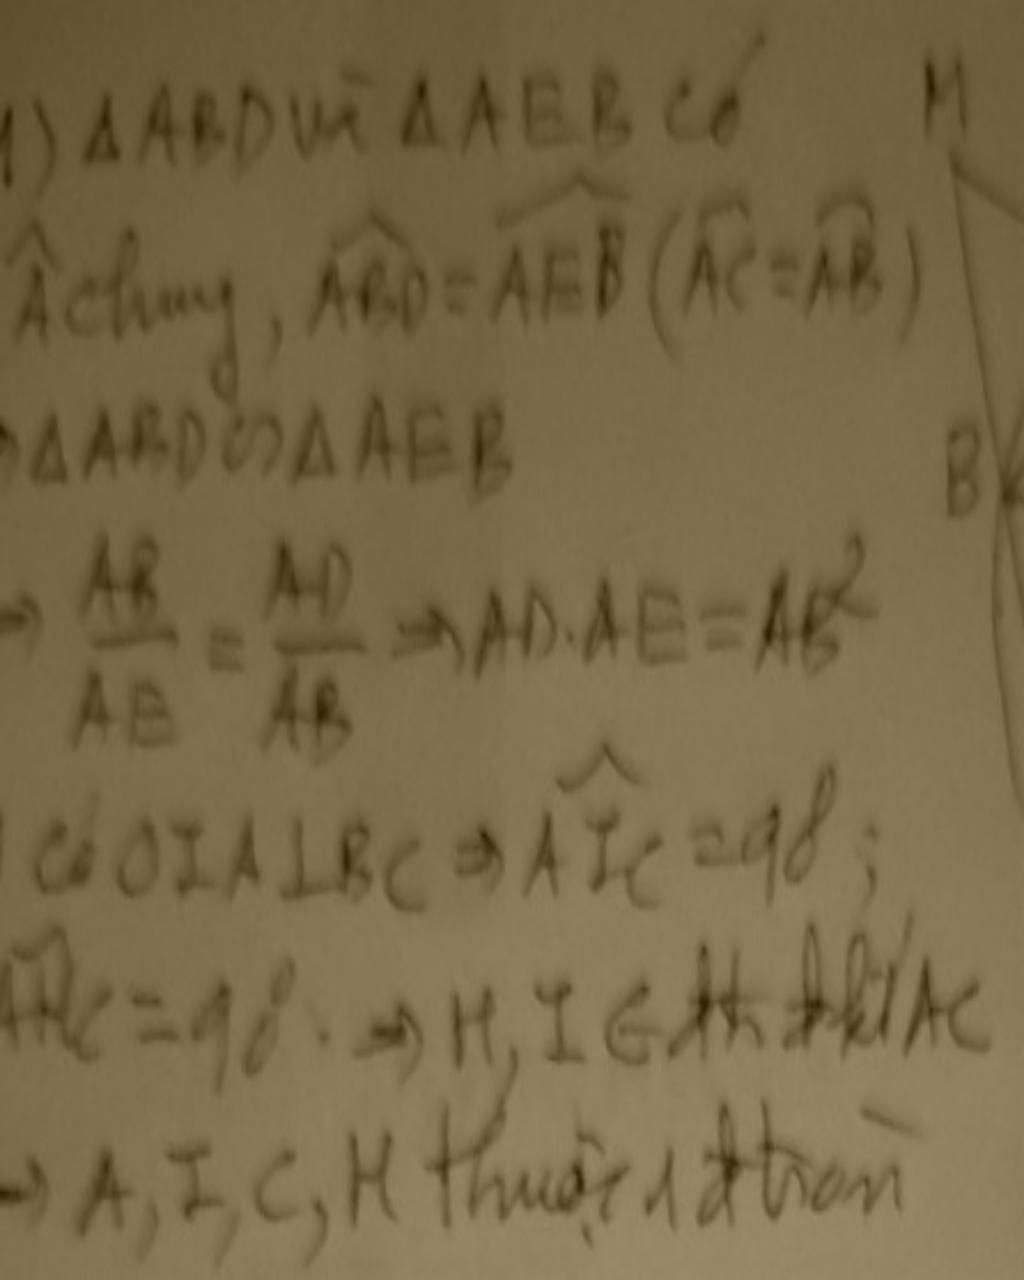 1) ΔABD và ΔAEB có
Â chung, ABD̂ = AEB̂ (AC⌢ = AB⌢)
→ ΔABD ∽ ΔAEB
→ AB/AE = AD/AB → AD.AE = AB²
Có OIA ⊥ BC → AIĈ = 90°;
AHĈ = 90°. → H, I ∈ đtr đkính AC
→ A, I, C, H thuộc 1 đtròn
M
B